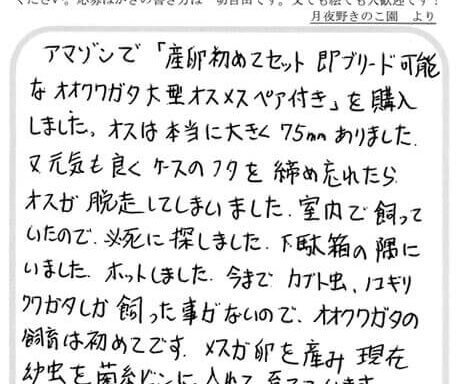 ください。応募はがきの書き方は一切自由です。文でも絵でも大歓迎です！
月夜野きのこ園　より
アマゾンで「産卵初めてセット 即ブリード可能
な オオクワガタ大型オスメスペア付き」を購入
しました。オスは本当に大きく75mmありました.
又元気も良く ケースのフタを 締め忘れたら
オスが 脱走してしまいました. 室内で飼って
いたので. 必死に探しました. 下駄箱の隅に
いました. ホットしました. 今まで カブト虫、ノコギリ
クワガタしか 飼った事がないので、オオクワガタの
飼育は初めてです. メスが卵を産み 現在
幼虫を菌糸ビンに 入れて 育て